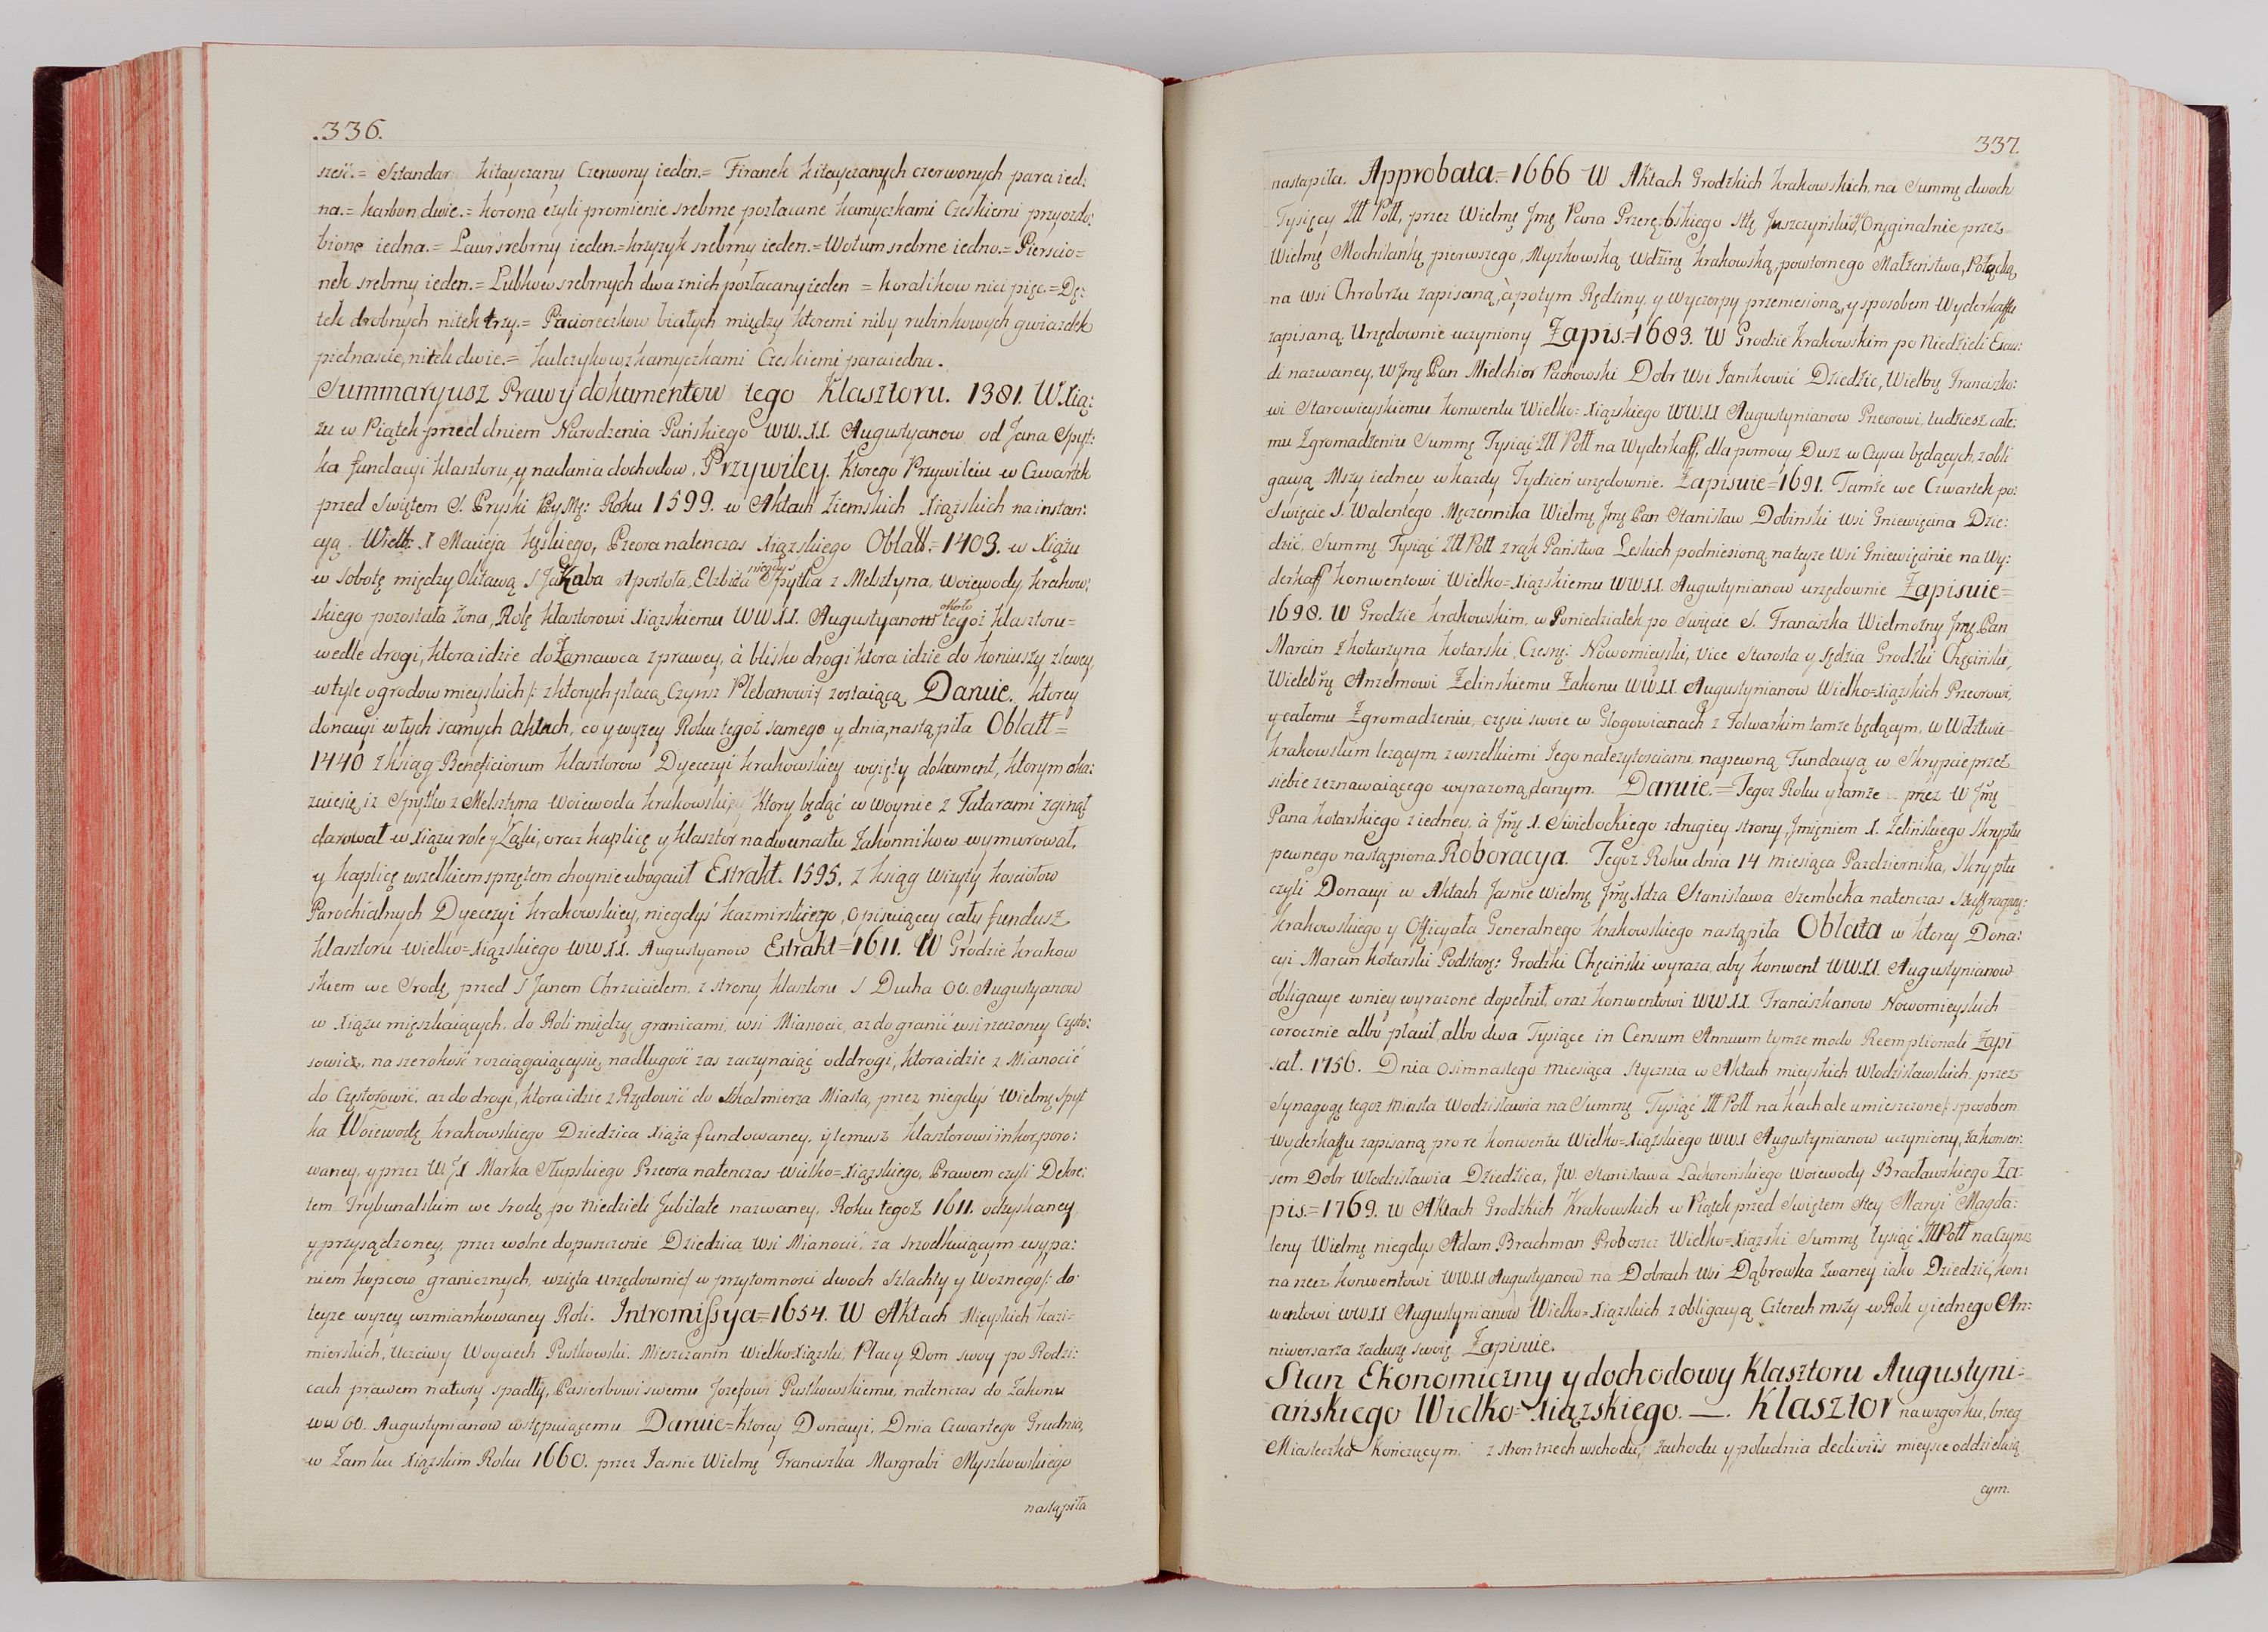 .336.
sześć.= Sztandar kitayczany Czerwony ieden.= Firanek kitayczanych czerwonych para ied:
na.= karbon dwie.= korona czyli promienie srebrne pozłacane kamyczkami Czeskiemi przyozdo:
bione iedna.= Laur srebrny ieden.= krzyzyk srebrny ieden.= Wotum srebrne iedno.= Pierscio=
nek srebrny ieden.= Lubkow srebrnych dwa z nich pozłacany ieden = koralikow nici pięć.= Dę:
tek drobnych nitek trzy.= Pacioreczkow białych między ktoremi niby rubinkowych gwiazdek
pietnascie, nitek dwie.= kulczykow z kamyczkami Czeskiemi para iedna.
Summaryusz Praw y dokumentow tego Klasztoru. 1381. W Xią:
żu w Piątek przed dniem Narodzenia Pańskiego WW.XX. Augustyanow od Jana Spyt:
ka fundacyi klasztoru, y nadania dochodow, Przywiley. Ktorego Przywileiu w Czwartek
przed Swiętem S. Pryski Roku 1599. w Aktach Ziemskich Xiązskich na instan:
cyą Wielb: X Macieja Przeora natenczas Xiązskiego Oblatt.= 1403. w Xiążu
w sobotę między Oktawą S Jakaba Apostoła, Elzbieta niegdyś Spytka z Melsztyna, Woiewody krakow:
skiego pozostała żona, Rolę klasztorowi Xiązskiemu WW XX. Augustyanow około tegoż klasztoru=
wedle drogi, ktora idzie do Żarnawca z prawey, à blisko drogi ktora idzie do koniuszy z lewey,
w tyle ogrodow mieyskich /: z ktorych płacą Czynsz Plebanowi :/ zostaiącą Daruie. ktorey
donacyi w tych samych aktach, co y wyzey Roku tegoż samego y dnia, nastąpiła Oblatt=
1440 z ksiąg Beneficiorum klasztorow Dyecezyi krakowskiey wyięty dokument, ktorym oka:
zuie się, iż Spytko z Melsztyna Woiewoda krakowski, ktory będąć w woynie z Tatarami zginął
darował w Xiążu role y Łąki, oraz kaplicę y klasztor na dwunastu Zakonnikow wymurował,
y kaplicę wszelkiem sprzętem choynie ubogacił Extrakt. 1595. z ksiąg Wizyty kosciołow
Parochialnych Dyecezyi krakowskiey, niegdyś kazmirskiego, opisuiący cały fundusz
klasztoru Wielko=Xiązskiego WW.XX. Augustyanow Extrakt= 1611. W Grodzie krakow
skiem we Srodę, przed S Janem Chrzcicielem, z strony klasztoru S Ducha OO. Augustyanow
w Xiążu mięszkaiących, do Roli między granicami, wsi Mianocic, az do granić wsi rzeczoney Często:
szowicz, na szerokość rozciągaiącey się, na długość zas zaczynaiąć od drogi, ktora idzie z Mianocić
do Częstoszowić, az do drogi, ktora idzie z Rzędowić do Skalmierza Miasta, przez niegdyś Wielmę Spyt
ka Woiewodę krakowskiego Dziedzica Xiąża fundowaney, y temusz klasztorowi inkorporo:
waney, y przez WJX Marka Słupskiego Przeora natenczas Wielko=Xiązskiego, Prawem czyli Dekre:
tem Trybunalskim we srodę, po Niedzieli Jubilate nazwaney, Roku tegoż 1611. odzyskaney
y przysądzoney, przez wolne dopuszczenie Dziedzica wsi Mianocić, za srzodkuiącym usypa:
niem kopcow granicznych, wzięta urzędownie /: w przytomnosci dwoch Szlachty y Woznego :/ do
teyze wyzey wzmiankowaney Roli. Intromissya= 1654. W Aktach Mieyskich kazi=
mierskich, Uczciwy Woyciech Pustkowski, Mieszczanin Wielko Xiązski, Plac y Dom swoy po Rodzi:
cach prawem natury spadły, Pasierbowi swemu Jozefowi Pustkowskiemu, natenczas do Zakonu
WW OO. Augustynianow wstępuiącemu Daruie= ktorey Donacyi, Dnia Czwartego Grudnia,
w Zamku Xiązskim Roku 1660. przez Jasnie Wielmę Franciszka Margrabi Myszkowskiego
nastąpiła
337.
nastąpiła. Approbata.= 1666 W Aktach Grodzkich krakowskich, na Summę dwoch
Tysięcy Złł Poll, przez Wielmę Jmę Pana Przerębskiego Oryginalnie przez
Wielmę Mochilankę, pierwszego, Myszkowską Wdzinę krakowską, powtornego Małżeństwa, Potocką
na wsi Chrobrzu zapisaną, à potym Rędziny y Wyczerpy przeniesioną, y sposobem Wyderkaffu
zapisaną, Urzędownie uczyniony Zapis.= 1683. W Grodzie krakowskim po Niedzieli Exau:
di nazwaney, WJmę Pan Mielchior Pacnowski Dobr Wsi Janikowić Dziedzic, Wielbę Franciszko:
wi Starowieyskiemu konwentu Wielko=Xiązskiego WW.XX Augustynianow Przeorowi, tudziesz całe:
mu Zgromadzeniu Summę Tysiąć Złł Poll na Wyderkaff, dla pomocy Dusz w Czyscu będących, z obli
gacyą Mszy iedney w kazdy Tydzień urzędownie. Zapisuie= 1691. Tamże we Czwartek po:
Swięcie S. Walentego Męczennika Wielmę Jmę Pan Stanisław Dobinski wsi Gniewięcina Dzie:
dzić, Summę Tysiąć Złł Poll z rąk Państwa Leskich podniesioną, na teyze Wsi Gniewięcinie na Wy:
derkaff konwentowi Wielko=Xiązskiemu WW.XX. Augustynianow urzędownie Zapisuie=
1698. W Grodzie krakowskim, w Poniedziałek po Swięcie S. Franciszka Wielmożny Jmę Pan
Marcin z kotarzyna kotarski, Czesnę: Nowomieyski, Vice Starosta y Sędzia Grodzki Chęciński,
Wielebnę Anzelmowi Zelinskiemu Zakonu WW.XX. Augustynianow Wielko=Xiązskich Przeorowi,
y całemu Zgromadzeniu, części swoie w Głogowianach z Folwarkim tamze będącym, w Wdztwie
krakowskim lezącym, z wszelkiemi Iego należytosciami, na pewną Fundacyą w Skrypcie przez
siebie zeznawaiącego wyrazoną, danym. Daruie.= Tegoz Roku y tamże przez WJmę
Pana kotarskiego z iedney, à Jmę X. Swiebockiego z drugiey strony, Jmięniem X. Zelińskiego Skryptu
pewnego nastąpiona Roboracya. Tegoz Roku dnia 14 miesiąca Pazdziernika, Skryptu
czyli Donacyi w Aktach Jasnie Wielmę Jmę Xdza Stanisława Szembeka natenczas Suffragny:
krakowskiego y Officyała Generalnego krakowskiego nastąpiła Oblata w ktorey Dona:
cyi Marcin kotarski Podstarę: Grodzki Chęciński wyraza, aby konwent WW.XX. Augustynianow
obligacye w niey wyrazone dopełnił, oraz konwentowi WW.XX. Franciszkanow Nowomieyskich
corocznie albo płacił, albo dwa Tysiące in Censum Annuum tymze modo Reemptionali Zapi
sał. 1756. Dnia Osimnastego miesiąca Stycznia w Aktach mieyskich Włodzisławskich przez
Synagogę tegoz Miasta Wodzisławia na Summę Tysiąć Złł Poll na kachale umieszczone :/ sposobem
Wyderkaffu zapisaną pro re konwentu Wielko=Xiązskiego WW.X Augustynianow uczyniony, za konsen:
sem Dobr Włodzisławia Dziedzica, JW. Stanisława Lackorońskiego Woiewody Bracławskiego Za=
pis.= 1769. W Aktach Grodzkich Krakowskich w Piątek przed Swiętem Stey Maryi Magda:
leny Wielmę niegdys Adam Brachman Proboszcz Wielko=Xiązski Summę tysiąć Złł Poll na Czynsz
na rzecz konwentowi WW.XX Augustyanow na Dobrach wsi Dąbrowka zwaney iako Dziedzić, kon:
wentowi WW.XX Augustynianow Wielko=Xiązskich z obligacyą Czterech mszy w Rok y iednego An:
niwersarza za duszę swoię Zapisuie.
Stan Ekonomiczny y dochodowy Klasztoru Augustyni=
ańskiego Wielko=Xiązskiego. —. Klasztor na wzgorku, brzeg
Miasteczka kończącym z stron trzech wschodu, zachodu y południa decliviis mieysce oddzielaią
cym.